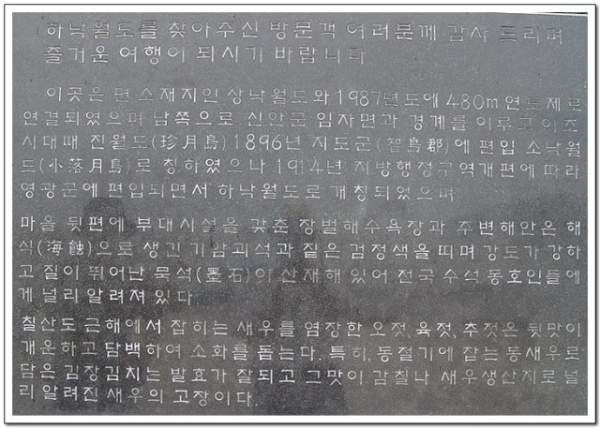 하낙월도를 찾아주신 방문객 여러분께 감사 드리며
즐거운 여행이 되시기 바랍니다
이곳은 면 소재지인 상낙월도와 1987년도에 480m 연도제로
연결되었으며 남쪽으로 신안군 임자면과 경계를 이루고 이조
시대때 진월도(珍月島) 1896년 지도군(智島郡)에 편입 소낙월
도(小落月島)로 칭하였으나 1914년 지방행정구역개편에 따라
영광군에 편입되면서 하낙월도로 개칭되었으며
마을 뒷편에 부대시설을 갖춘 장벌해수욕장과 주변해안은 해
식(海蝕)으로 생긴 기암괴석과 짙은 검정색을 띠며 강도가 강하
고 질이 뛰어난 묵석(墨石)이 산재해 있어 전국 수석 동호인들에
게 널리 알려져 있다
칠산도 근해에서 잡히는 새우를 염장한 오젓, 육젓, 추젓은 뒷맛이
개운하고 담백하여 소화를 돕는다. 특히, 동절기에 잡는 동새우로
담은 김장김치는 발효가 잘되고 그맛이 감칠나 새우생산지로 널
리 알려진 새우의 고장이다.